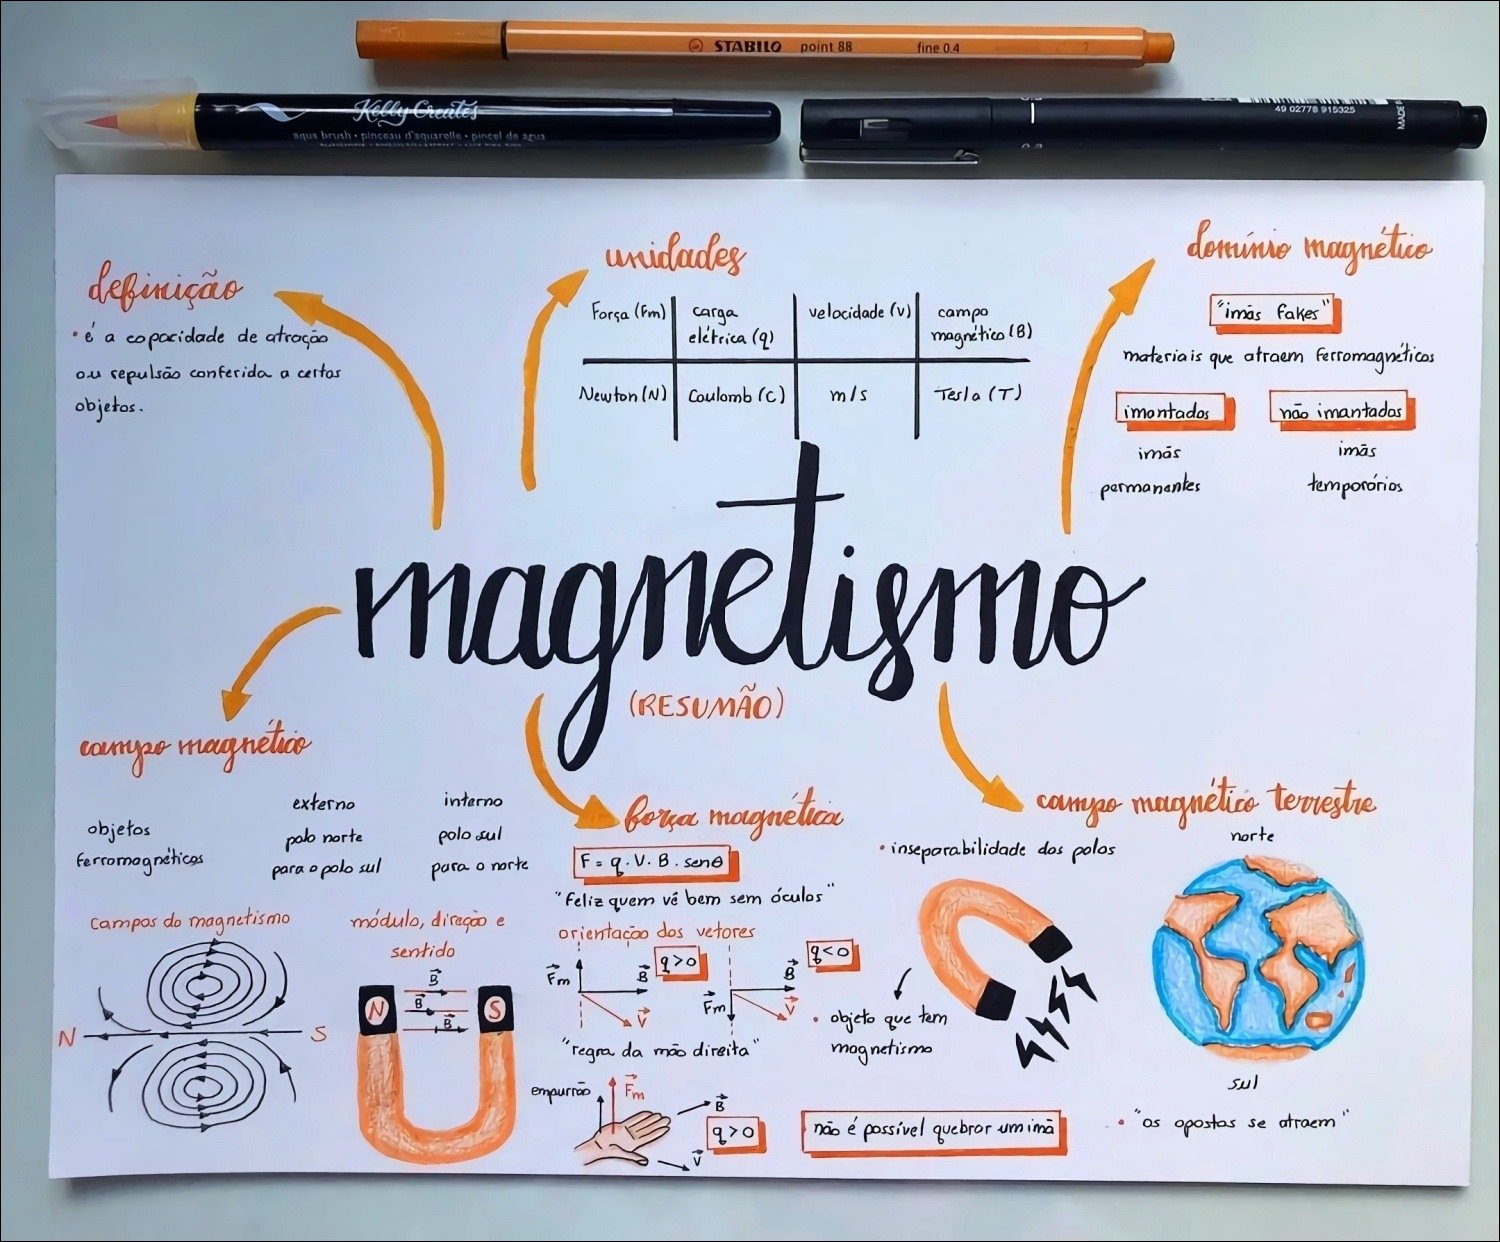 STABILO point 88 fine 0.4
Kelly Creates
aqua brush • pinceau d'aquarelle • pincel de agua
49 02778 915325
MADE
definição
• é a capacidade de atração
ou repulsão conferida a certos
objetos.
unidades
Força (Fm) carga elétrica (q) velocidade (v) campo magnético (B)
Newton (N) Coulomb (C) m/s Tesla (T)
domínio magnético
"imãs fakes"
materiais que atraem ferromagnéticos
imantados não imantados
imãs permanentes
imãs temporários
magnetismo
(RESUMÃO)
campo magnético
objetos
ferromagnéticos
externo
polo norte
para o polo sul
interno
polo sul
para o norte
campos do magnetismo
N S
módulo, direção e
sentido
B
B
B
N S
força magnética
F = q . V . B . senθ
"Feliz quem vê bem sem óculos"
orientação dos vetores
Fm B V q>0
Fm B V q<0
"regra da mão direita"
empurrão Fm B V q>0
campo magnético terrestre
• inseparabilidade dos polos
• objeto que tem
magnetismo
não é possível quebrar um imã
norte
sul
• "os opostos se atraem"